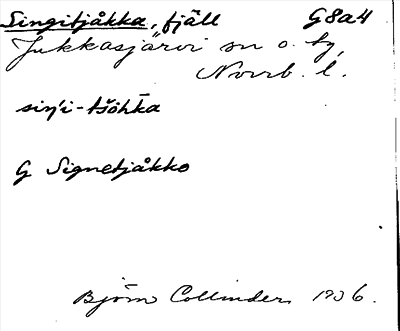 Singitjåkka, fjäll G8a4
Jukkasjärvi sn o. ty,
Norrb. l.
siŋ'i-tšåhkka
G Signetjåkko
Björn Collinder 1936.